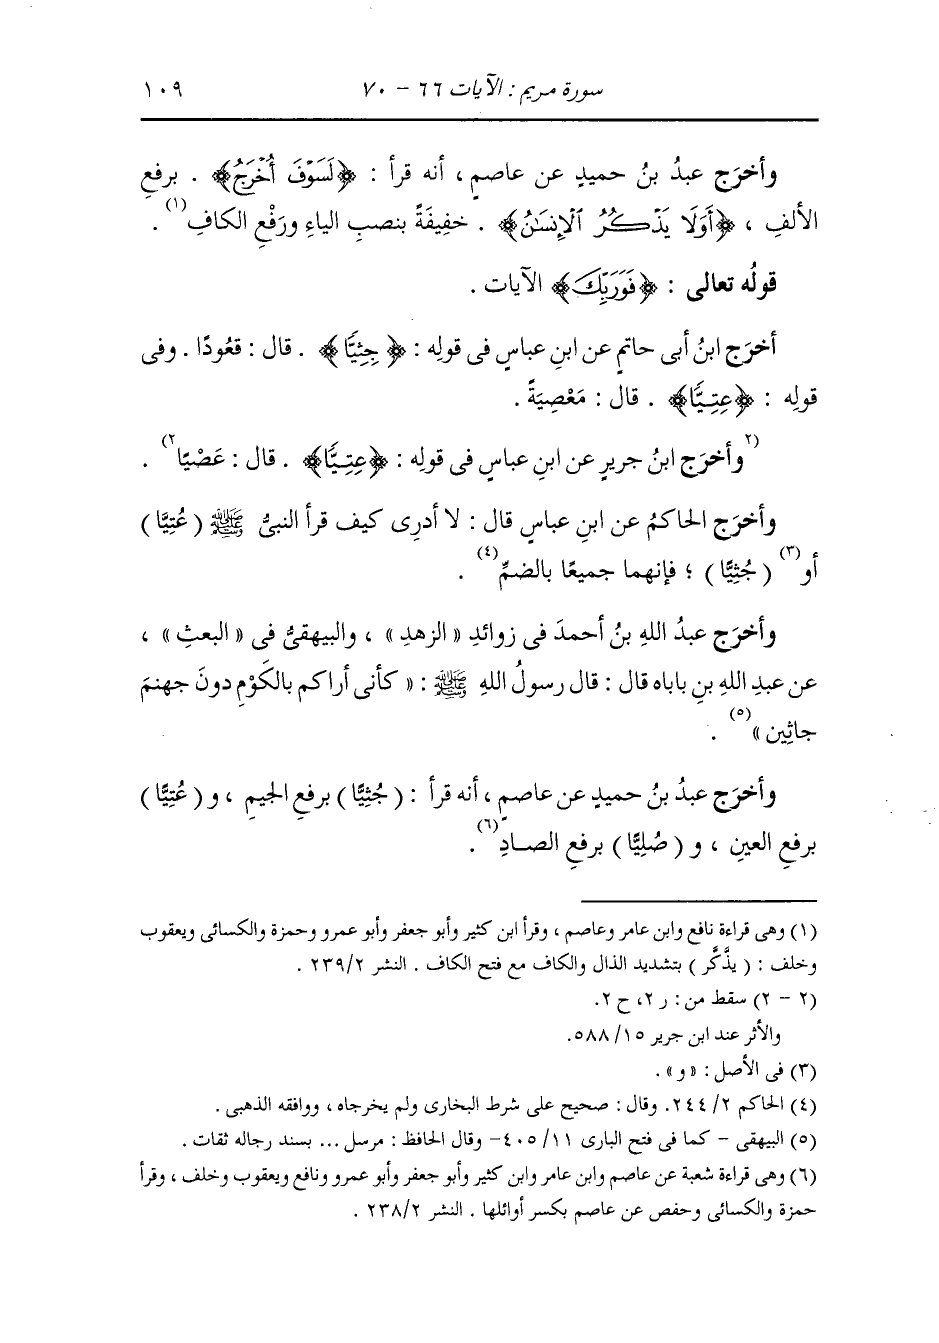 سورة مريم : الآيات ٦٦ – ٧٠ ١٠٩
وأخرَج عبدُ بنُ حميدٍ عن عاصمٍ ، أنه قرأ : ﴿لَسَوْفَ أُخْرَجُ﴾ . برفعِ
الألفِ ، ﴿أَوَلَا يَذْكُرُ ٱلْإِنسَٰنُ﴾ . خفِيفَةً بنصبِ الياءِ ورَفْعِ الكافِ(١) .
قولُه تعالى : ﴿فَوَرَبِّكَ﴾ الآيات .
أخرَج ابنُ أبى حاتمٍ عن ابنِ عباسٍ فى قولِه : ﴿ جِثِيًّا ﴾ . قال : قعُودًا . وفى
قولِه : ﴿عِتِيًّا﴾ . قال : مَعْصِيَةً .
(٢)وأخرَج ابنُ جريرٍ عن ابنِ عباسٍ فى قولِه : ﴿عِتِيًّا﴾ . قال : عَصْيًا(٢) .
وأخرَج الحاكمُ عن ابنِ عباسٍ قال : لا أدرِى كيف قرأ النبىُّ ﷺ ( عُتِيًّا )
أو(٣) ( جُثِيًّا ) ؛ فإنهما جميعًا بالضمِّ(٤) .
وأخرَج عبدُ اللهِ بنُ أحمدَ فى زوائدِ « الزهدِ » ، والبيهقىُّ فى « البعثِ » ،
عن عبدِ اللهِ بنِ باباه قال : قال رسولُ اللهِ ﷺ : « كأنى أراكم بالكَوْمِ دونَ جهنمَ
جاثِين »(٥) .
وأخرَج عبدُ بنُ حميدٍ عن عاصمٍ ، أنه قرأ : ( جُثِيًّا ) برفعِ الجيمِ ، و ( عُتِيًّا )
برفعِ العينِ ، و ( صُلِيًّا ) برفعِ الصادِ(٦) .
(١) وهى قراءة نافع وابن عامر وعاصم ، وقرأ ابن كثير وأبو جعفر وأبو عمرو وحمزة والكسائى ويعقوب
وخلف : ( يذَّكَّر ) بتشديد الذال والكاف مع فتح الكاف . النشر ٢/٢٣٩ .
(٢ – ٢) سقط من : ر ٢، ح ٢.
والأثر عند ابن جرير ١٥/ ٥٨٨.
(٣) فى الأصل : « و » .
(٤) الحاكم ٢/ ٢٤٤. وقال : صحيح على شرط البخارى ولم يخرجاه ، ووافقه الذهبى .
(٥) البيهقى – كما فى فتح البارى ١١/ ٤٠٥– وقال الحافظ : مرسل ... بسند رجاله ثقات .
(٦) وهى قراءة شعبة عن عاصم وابن عامر وابن كثير وأبو جعفر وأبو عمرو ونافع ويعقوب وخلف ، وقرأ
حمزة والكسائى وحفص عن عاصم بكسر أوائلها . النشر ٢/٢٣٨ .